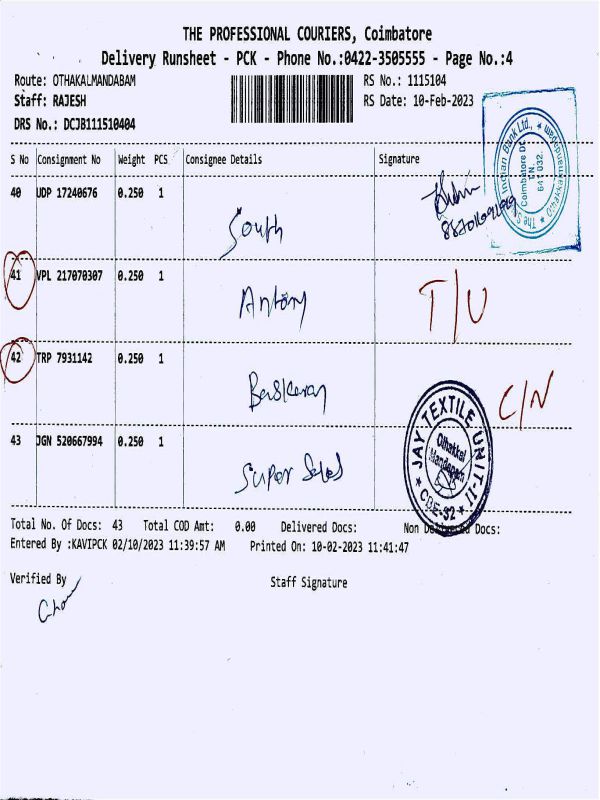 THE PROFESSIONAL COURIERS, Coimbatore
Delivery Runsheet - PCK - Phone No.:0422-3505555 - Page No.:4
Route: OTHAKALMANDABAM
RS No.: 1115104
Staff: RAJESH
RS Date: 10-Feb-2023
DRS No.: DCJB111510404
S No Consignment No Weight PCS Consignee Details Signature
40 UDP 17240676 0.250 1
South
41 VPL 217070307 0.250 1
Antony
T/U
42 TRP 7931142 0.250 1
Baskaran
C/N
43 JGN 520667994 0.250 1
Super Sales
JAY TEXTILE UNIT-II
Othakkal
Mandapam
CBE-32
Indian Bank Ltd.,
Coimbatore Dt.
TN.
641 032.
Total No. Of Docs: 43 Total COD Amt: 0.00 Delivered Docs: Non Delivered Docs:
Entered By :KAVIPCK 02/10/2023 11:39:57 AM Printed On: 10-02-2023 11:41:47
Verified By
Staff Signature